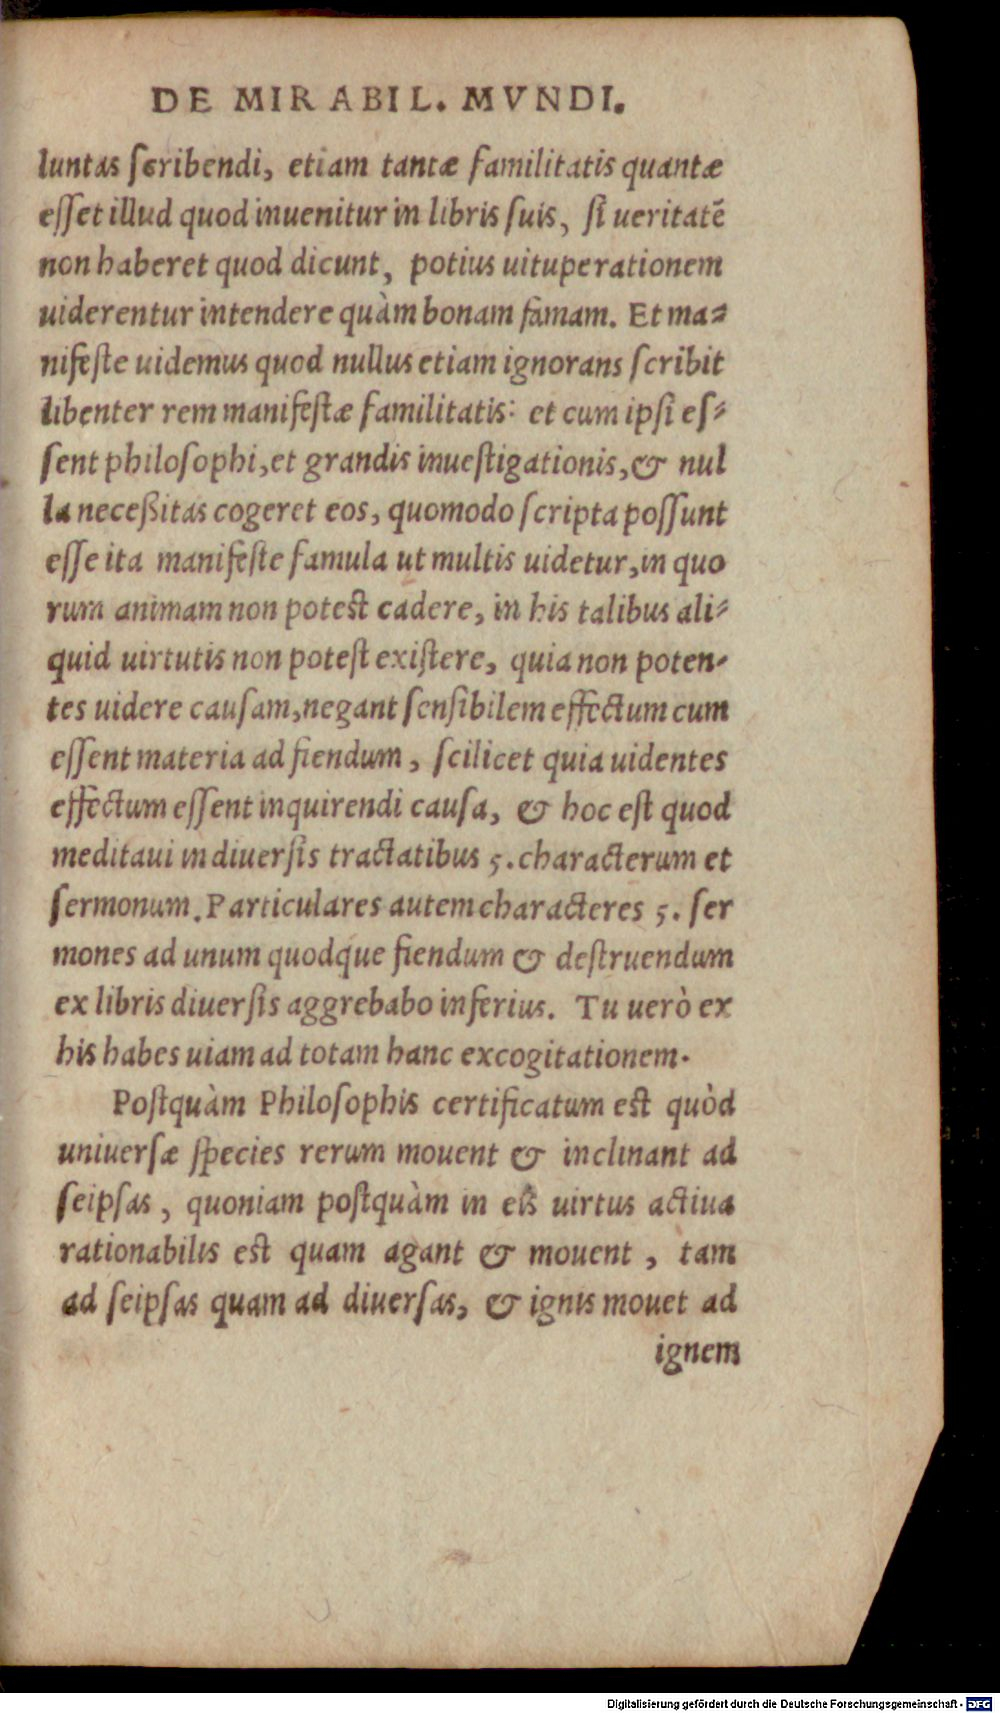 DE MIRABIL. MVNDI.
luntas scribendi, etiam tantæ familitatis quantæ
esset illud quod inuenitur in libris suis, si ueritatē
non haberet quod dicunt, potius uituperationem
uiderentur intendere quàm bonam famam. Et ma-
nifeste uidemus quod nullus etiam ignorans scribit
libenter rem manifestæ familitatis: et cum ipsi es-
sent philosophi, et grandis inuestigationis, & nul
la necessitas cogeret eos, quomodo scripta possunt
esse ita manifeste famula ut multis uidetur, in quo
rum animam non potest cadere, in his talibus ali-
quid uirtutis non potest existere, quia non poten-
tes uidere causam, negant sensibilem effectum cum
essent materia ad fiendum, scilicet quia uidentes
effectum essent inquirendi causa, & hoc est quod
meditaui in diuersis tractatibus 5. characterum et
sermonum. Particulares autem characteres 5. ser
mones ad unum quodque fiendum & destruendum
ex libris diuersis aggrebabo inferius. Tu uerò ex
his habes uiam ad totam hanc excogitationem.
Postquàm Philosophis certificatum est quòd
uniuersæ species rerum mouent & inclinant ad
seipsas, quoniam postquàm in eis uirtus actiua
rationabilis est quam agant & mouent, tam
ad seipsas quam ad diuersas, & ignis mouet ad
ignem
Digitalisierung gefördert durch die Deutsche Forschungsgemeinschaft - DFG